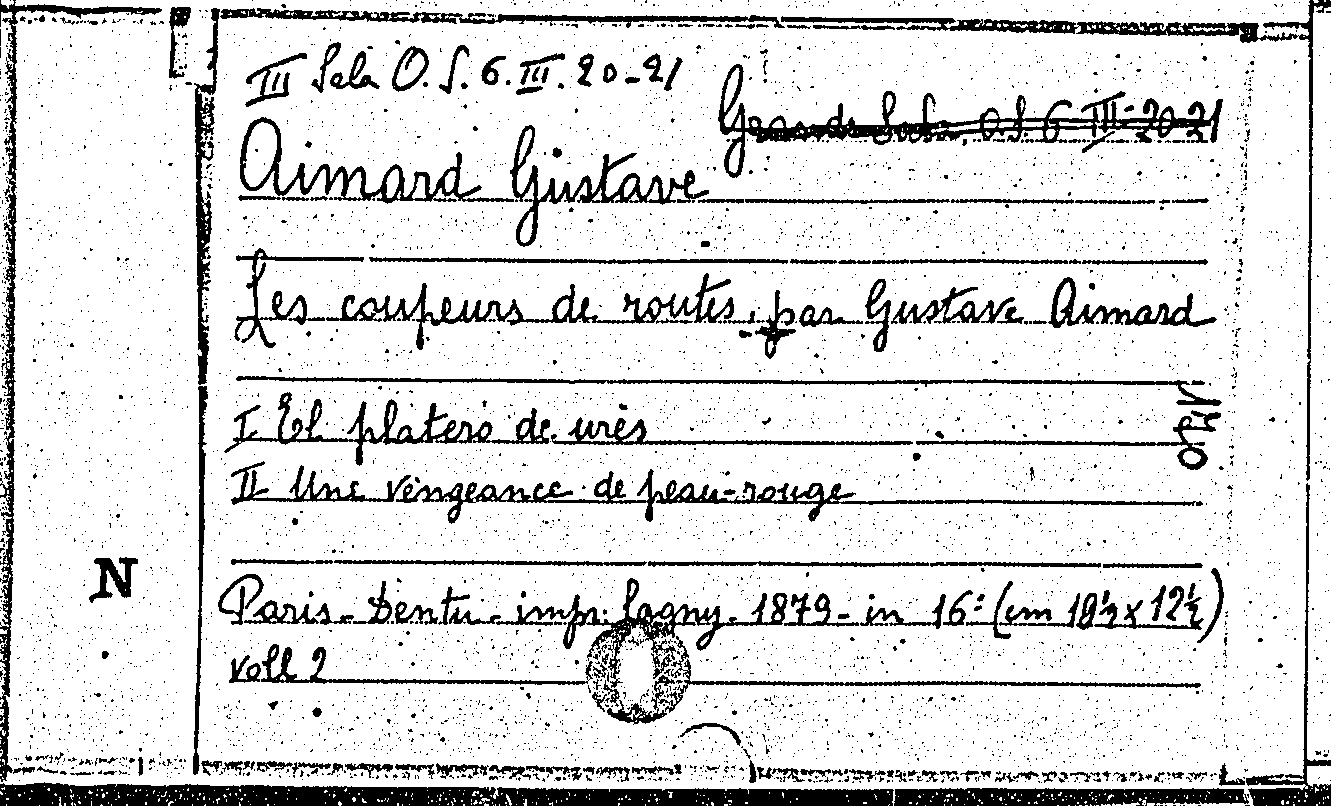 III Sala O. S. 6. III. 20-21
Grande Sala, O.S. 6 III. 20 21
Aimard Gustave
Les coupeurs de routes, par Gustave Aimard
I. El platero de urès
II Une vengeance de peau-rouge
N
Paris - Dentu - impr. Lagny - 1879 - in 16° (cm 18½ x 12½)
voll 2